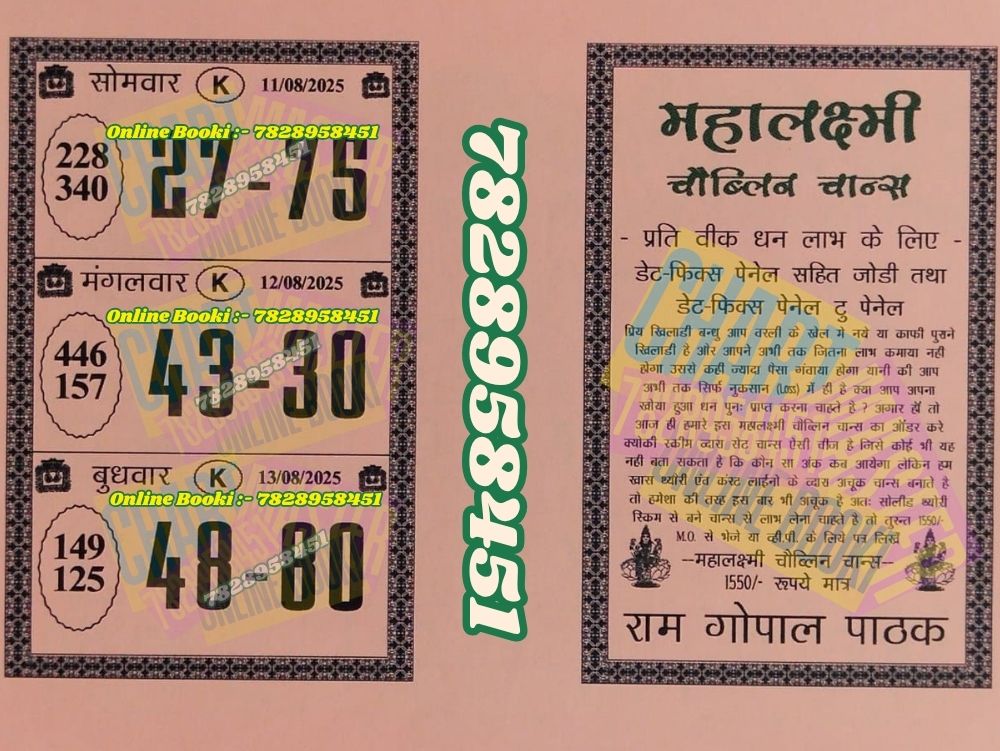 सोमवार K 11/08/2025
Online Booki :- 7828958451
228
340
27-75
7828958451
मंगलवार K 12/08/2025
Online Booki :- 7828958451
446
157
43-30
7828958451
बुधवार K 13/08/2025
Online Booki :- 7828958451
149
125
48-80
7828958451
7828958451
महालक्ष्मी
चौब्लिन चान्स
- प्रति वीक धन लाभ के लिए -
डेट-फिक्स पेनेल सहित जोडी तथा
डेट-फिक्स पेनेल टु पेनेल
प्रिय खिलाडी बन्धु आप वरली के खेल में नये या काफी पुराने
खिलाडी है और आपने अभी तक जितना लाभ कमाया नही
होगा उससे कही ज्यादा पैसा गंवाया होगा यानी की आप
अभी तक सिर्फ नुकसान (Loss) में ही है क्या आप अपना
खोया हुआ धन पुनः प्राप्त करना चाहते है ? अगार हाँ तो
आज ही हमारे इस महालक्ष्मी चौब्लिन चान्स का ऑडर करे
क्योकी स्कीम व्दारा सेट चान्स ऐसी चीज है जिसे कोई भी यह
नही बता सकता है कि कौन सा अंक कब आयेगा लेकिन हम
खास थ्योरी एंव कस्ट लाईनो के व्दारा अचूक चान्स बनाते है
तो हमेशा की तरह इस बार भी अचूक है अतः सोलीड थ्योरी
स्किम से बने चान्स से लाभ लेना चाहते है तो तुरन्त 1550/-
M.O. से भेजे या व्ही.पी. के लिये पत्र लिखें
--महालक्ष्मी चौब्लिन चान्स--
1550/- रूपये मात्र
राम गोपाल पाठक